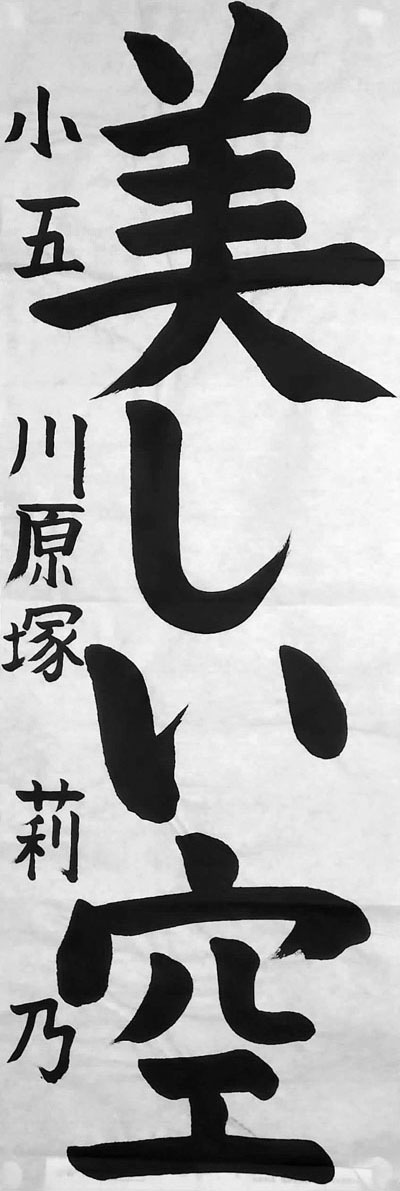 美しい空
小五 川原塚 莉乃